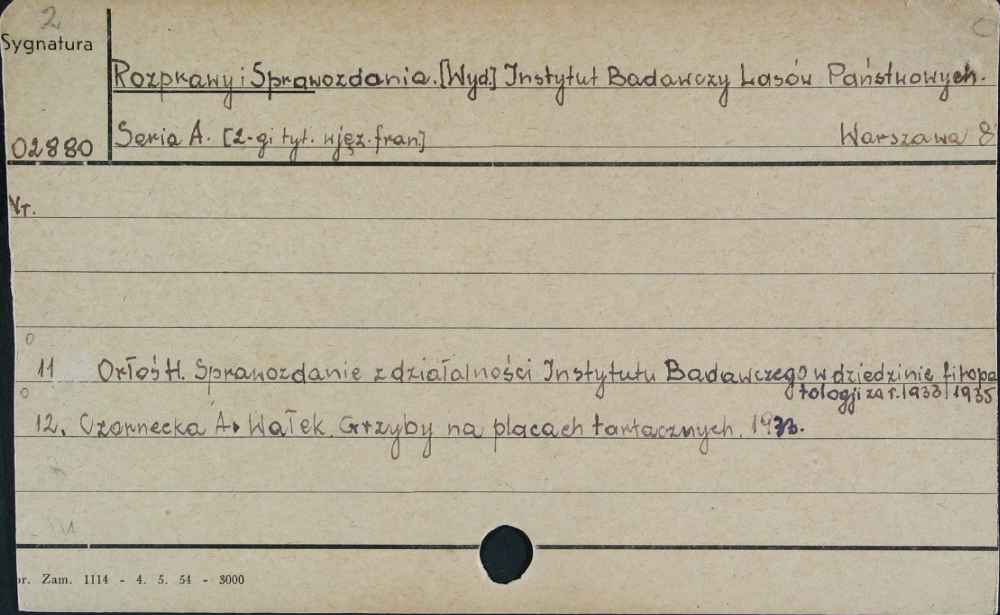 2
Sygnatura
Rozprawy i Sprawozdania. [Wyd] Instytut Badawczy Lasów Państwowych.
02880
Seria A. [2-gi tyt. w jęz. fran] Warszawa 8
Nr.
11 Orłoś H. Sprawozdanie z działalności Instytutu Badawczego w dziedzinie fitopa
tologji za r. 1933/1935
12. Czarnecka A. Wałek. Grzyby na placach tartacznych.
r. Zam. 1114 - 4. 5. 54 - 3000